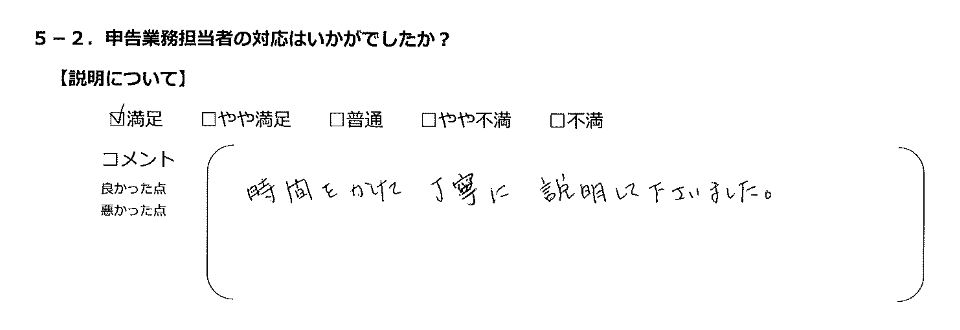 5－2．申告業務担当者の対応はいかがでしたか？
【説明について】
☑満足 □やや満足 □普通 □やや不満 □不満
コメント
良かった点
悪かった点
時間をかけて 丁寧に 説明して下さいました。